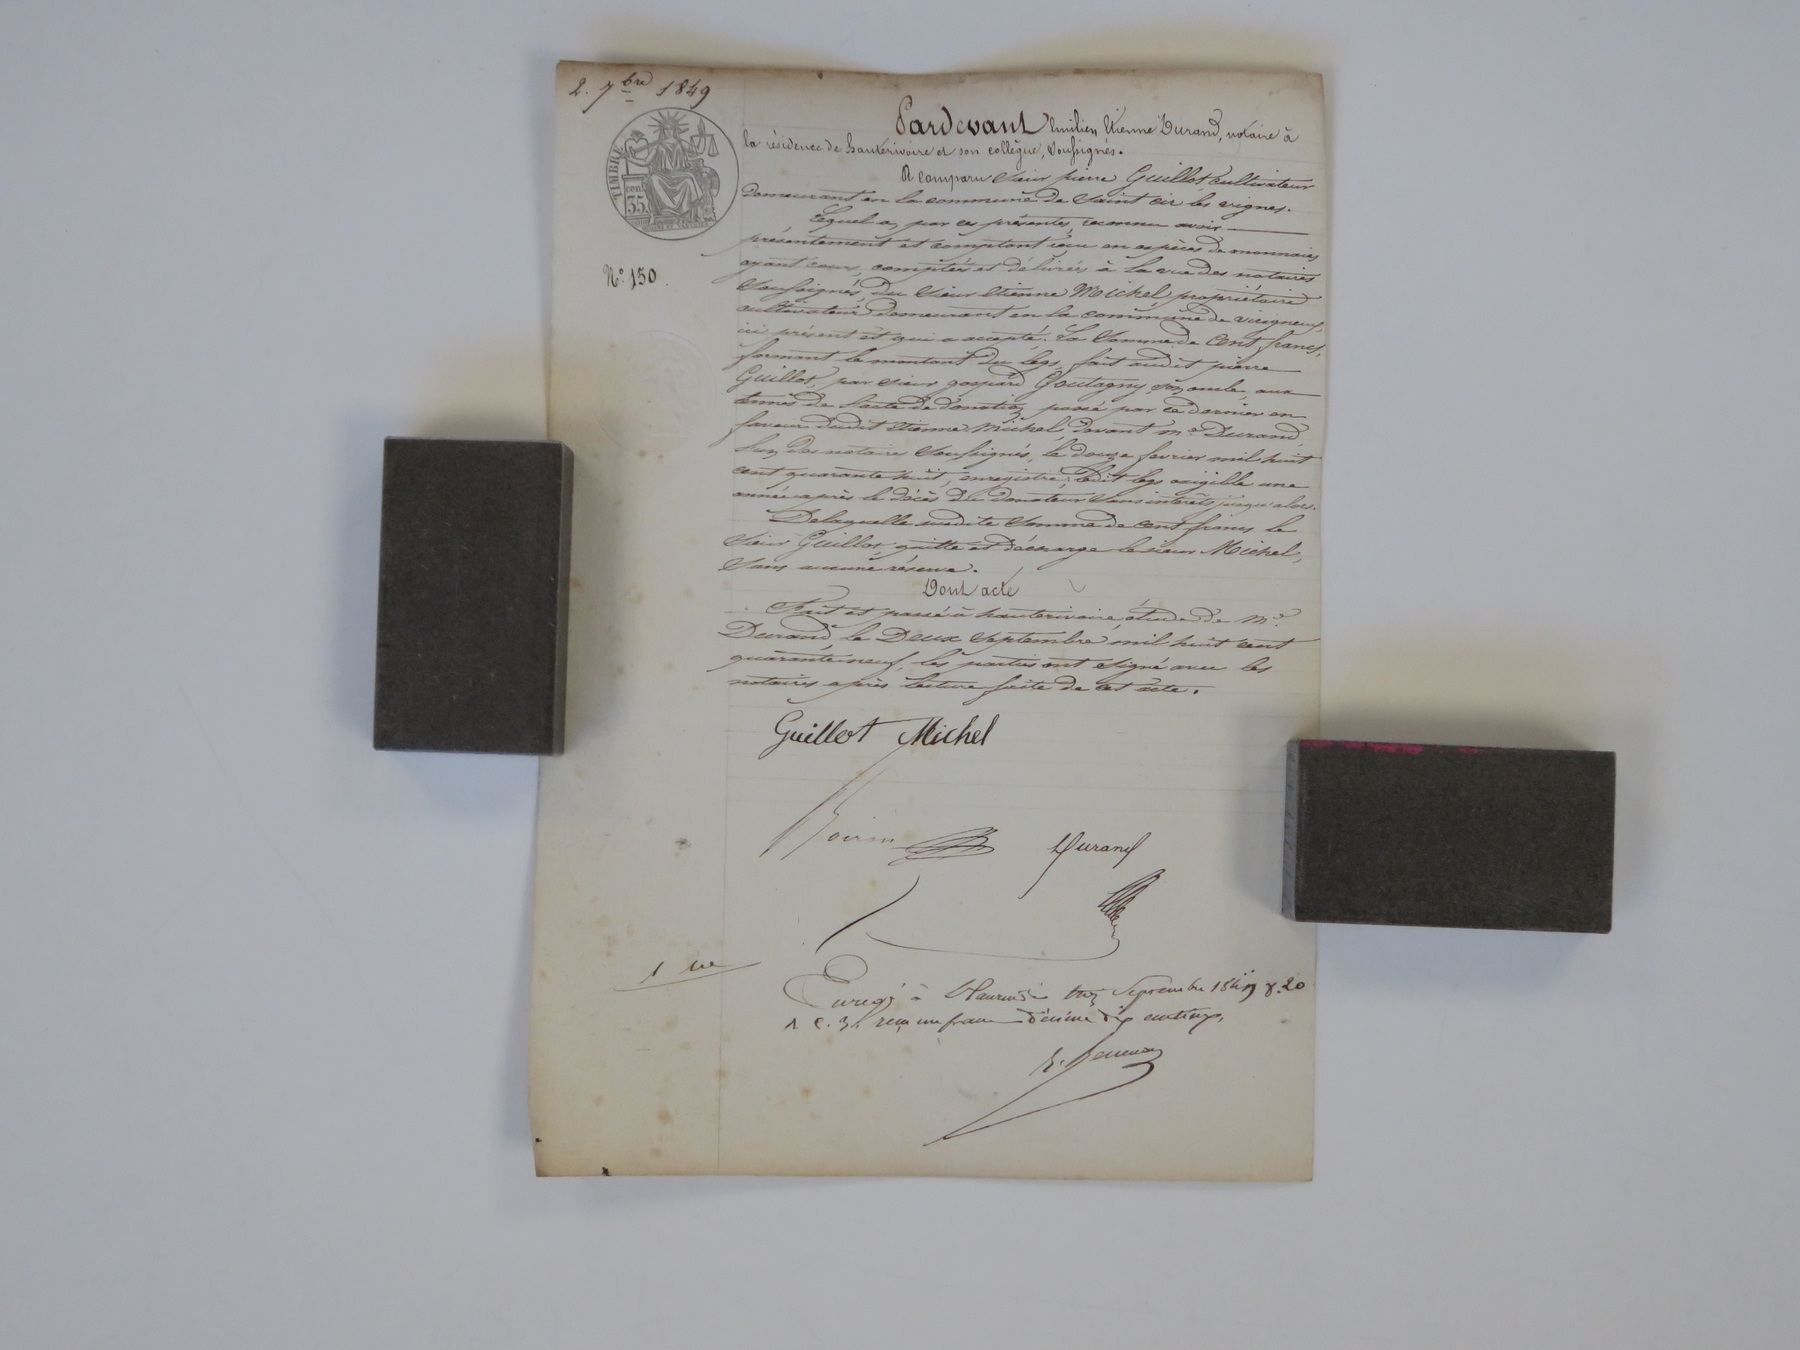 2. 7bre 1849
TIMBRE
cent
35.
N° 150.
Pardevant Emilien Etienne Durand, notaire à
la résidence de hauterivoire et son collègue, soussignés.
A comparu sieur pierre Guillot cultivateur
demeurant en la commune de Saint cir les vignes.
Lequel a, par ces présentes, reconnu avoir
présentement et comptant reçu en espèces de monnaies
ayant cours, comptées et délivrés à la vue des notaires
soussignés, du sieur Etienne Michel propriétaire
cultivateur demeurant en la commune de virigneux,
ici présent et qui a accepté. La somme de cent francs,
formant le montant du legs, fait audit pierre
Guillot, par sieur gaspard Goutagny, son oncle, aux
termes de l'acte de donation passé par ce dernier en
faveur dudit Etienne Michel, devant me Durand,
l'un des notaires soussignés, le douze fevrier mil huit
cent quarante huit, enregistré; ledit legs exigible une
année après le décès du donateur sans intérêts jusqu'alors.
De laquelle susdite somme de cent francs le
sieur Guillot quitte et décharge le sieur Michel,
sans aucune réserve.
Dont acte
Fait et passé à hauterivoire, étude de Me
Durand, le Deux septembre mil huit cent
quarante neuf, les parties ont signé avec les
notaires après lecture faite de cet acte.
Guillot Michel
Durand
à St Laurent trois Septembre 1849 f. 20
reçu un franc décime dix centimes